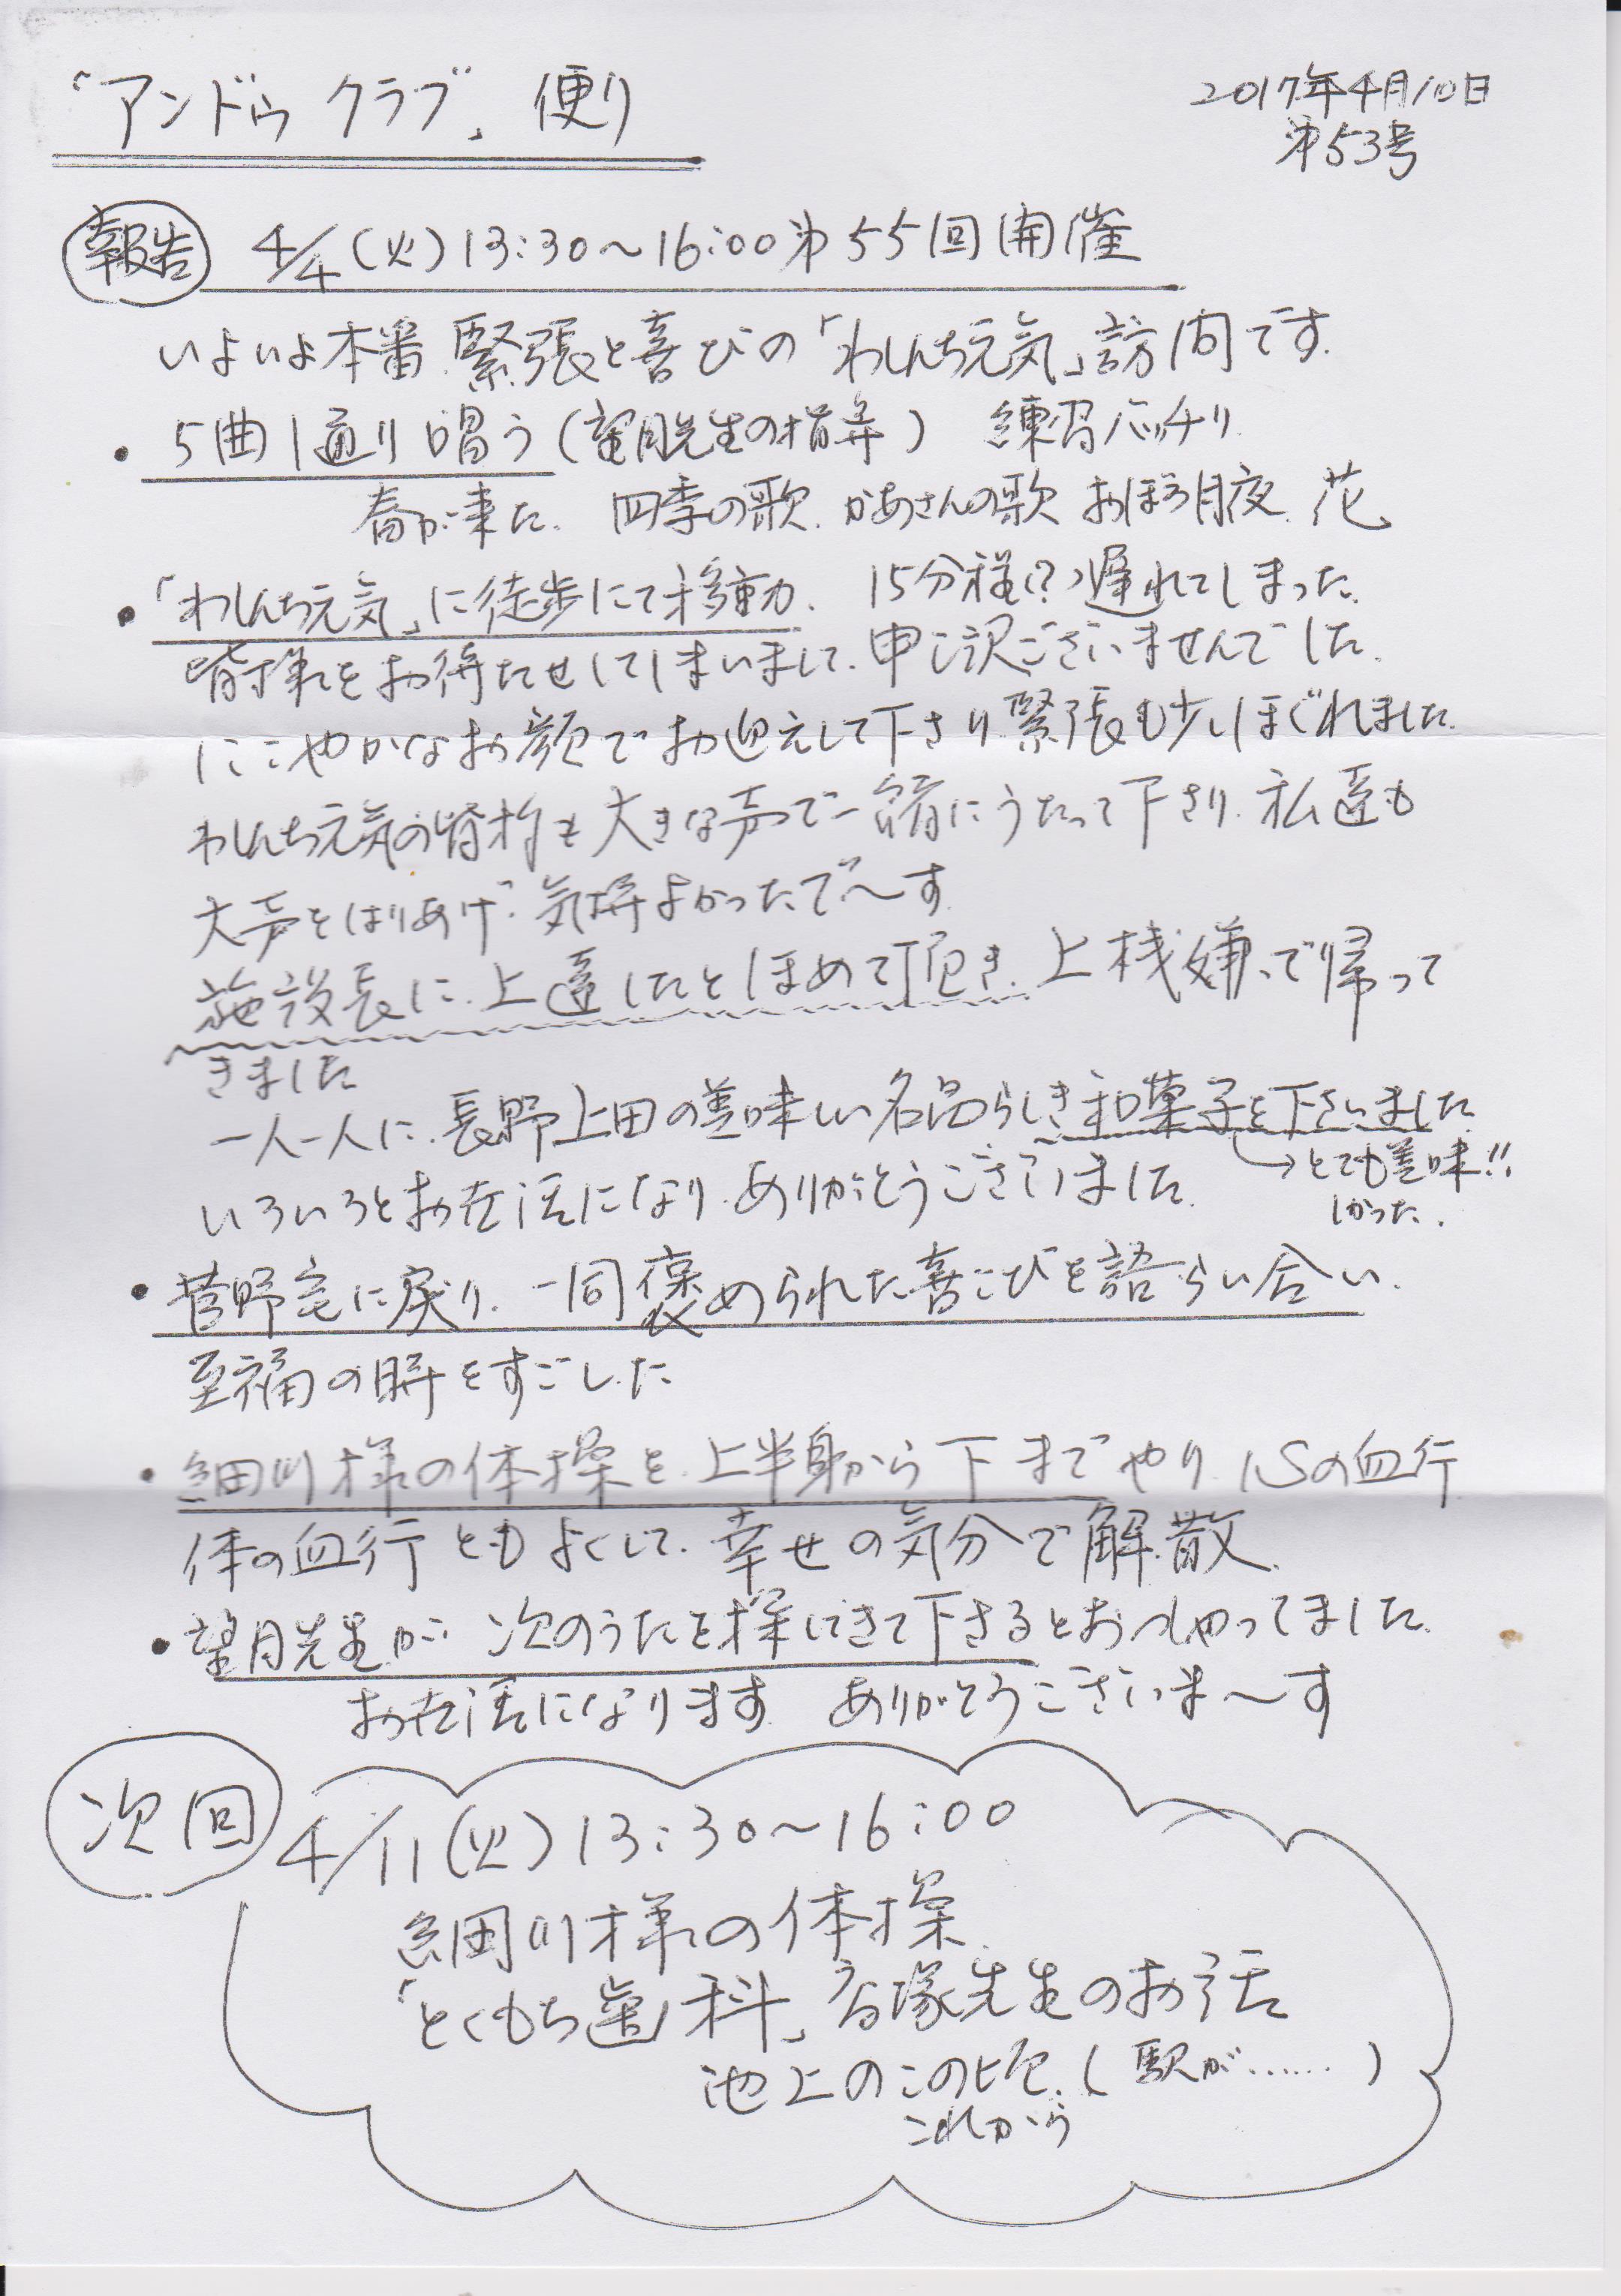 「アンドゥ クラブ」便り
2017年4月10日
第53号
報告 4/4(火)13:30〜16:00第55回開催
いよいよ本番 緊張と喜びの「わしんち元気」訪問です.
・5曲1通り唱う(望月先生の指揮) 練習バッチリ
春が来た. 四季の歌. かあさんの歌 おぼろ月夜. 花
・「わしんち元気」に徒歩にて移動. 15分程(?)遅れてしまった.
皆様をお待たせしてしまいまして.申し訳ございませんでした.
にこやかなお顔でお迎えして下さり緊張も少しほぐれました.
わしんち元気の皆様も大きな声で一緒にうたって下さり.私達も
大声をはりあげ.気持よかったで〜す
施設長に.上達したとほめて頂き.上機嫌で帰って
きました
一人一人に.長野上田の美味しい名品らしき和菓子を下さいました.
→とても美味!!
しかった.
いろいろとお世話になり.ありがとうございました.
・菅野宅に戻り.一同褒められた喜こびを語らい合い.
至福の時をすごした
・細川様の体操を.上半身から下までやり.心の血行
体の血行ともよくして.幸せの気分で解散.
・望月先生が 次のうたを探してきて下さるとおっしゃってました.
お世話になります. ありがとうございま〜す
次回 4/11(火)13:30〜16:00
細川様の体操.
「とくもち歯科」 先生のお話
池上のこの頃.(駅が……)
これから